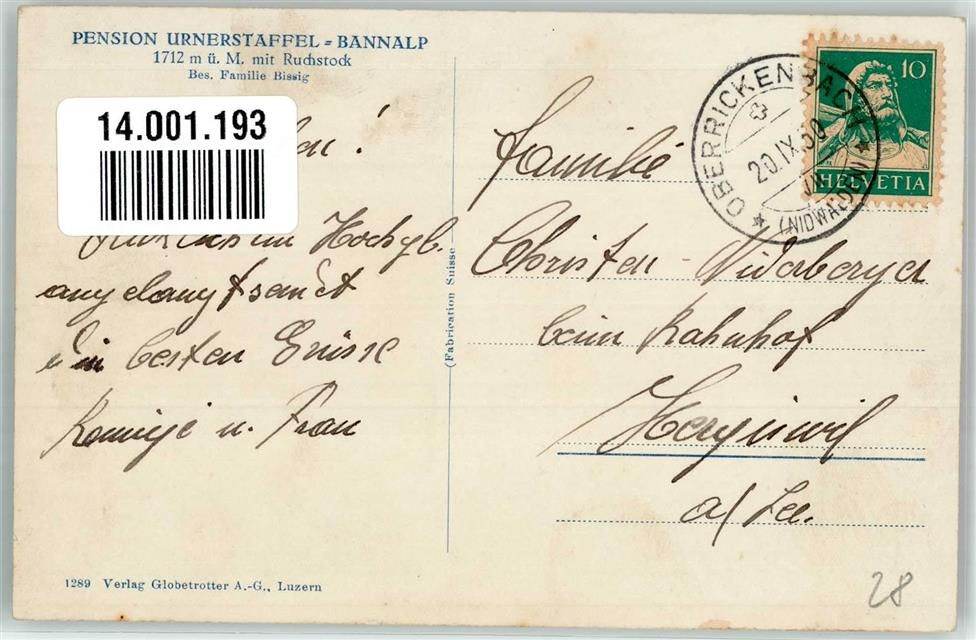 PENSION URNERSTAFFEL = BANNALP
1712 m ü. M. mit Ruchstock
Bes. Familie Bissig
14.001.193
Hochgb.
angelangt sendet
besten Grüsse
u. Frau
(Fabrication Suisse
1289 Verlag Globetrotter A.-G., Luzern
OBERRICKENBACH
20.IX.30
(NIDWALDEN)
10
HELVETIA
Familie
Christen - Niderberger
beim Bahnhof
Hergiswil
a/ See.
28